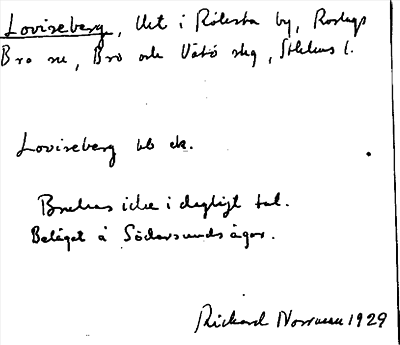 Loviseberg, lht i Rolsta by, Roslags
Bro sn, Bro och Vätö skg, Sthlms l.
Loviseberg bb ek.
Brukas icke i dagligt tal.
Beläget å Södersunds ägor.
Rickard 1929